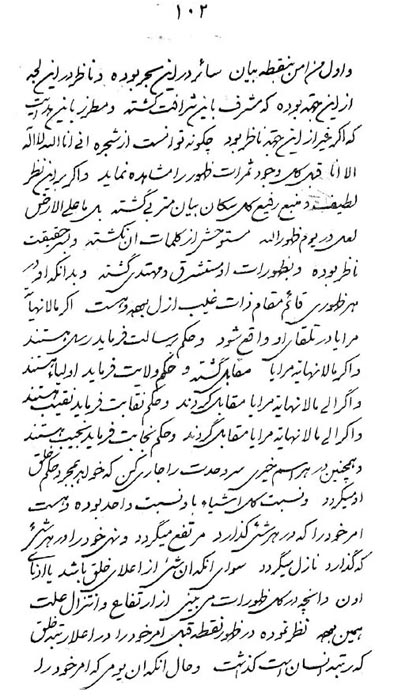 ۱۰۲
و اول من امن بنقطه بیان سائر در این بحر بوده و ناظر در این لجه
از این جهة بوده که مشرف باین شرافت گشته و مطرز باین
که اگر بغیر از این جهة ناظر بود چگونه توانست از شجره انی انا الله لا اله
الا انا قبل کل وجود ثمرات ظهور را مشاهده نماید و اگر بر این نظر
لطیف و منیع رفیع کل سکان بیان متربی گشته بل ما علی الارض
لعل در یوم ظهور الله مستوحش از کلمات ان نگشته و بعین حقیقت
ناظر بوده و بظهورات او مستشرق و مهتدی گشته و بدانکه او در
هر ظهوری قائم مقام ذات غیب ازل بوده و هست اگر مالانهایه
مرایا در تلقای او واقع شود و حکم رسالت فرماید رسل هستند
و اگر مالانهایة مرایا مقابل گشته و حکم ولایت فرماید اولیاء هستند
و اگر الی مالانهایة مرایا مقابل گردند و حکم نقابت فرماید نقیب هستند
و اگر الی مالانهایة مرایا مقابل گردند و حکم نجابت فرماید نجیب هستند
و همچنین در هر اسم خیری سر وحدت را جاری کن که خواهر مجرد حکم خلق
او میگردد و نسبت کل اشیاء باو نسبت واحد بوده و هست
امر خود را که در هر شئ گذارد مرتفع میگردد و نهی خود را در هر شئ
که گذارد نازل میگردد سوای انکه ان شئ از اعلای خلق باشد یا ادنای
اون و انچه در کل ظهورات می بینی از ارتفاع و انتزال علت
همین بوده نظر نموده در ظهور نقطه قبل امر خود را در اعلا رتبه خلق
که رتبه انسان است گذاشت و حال انکه ان یومی که امر خود را